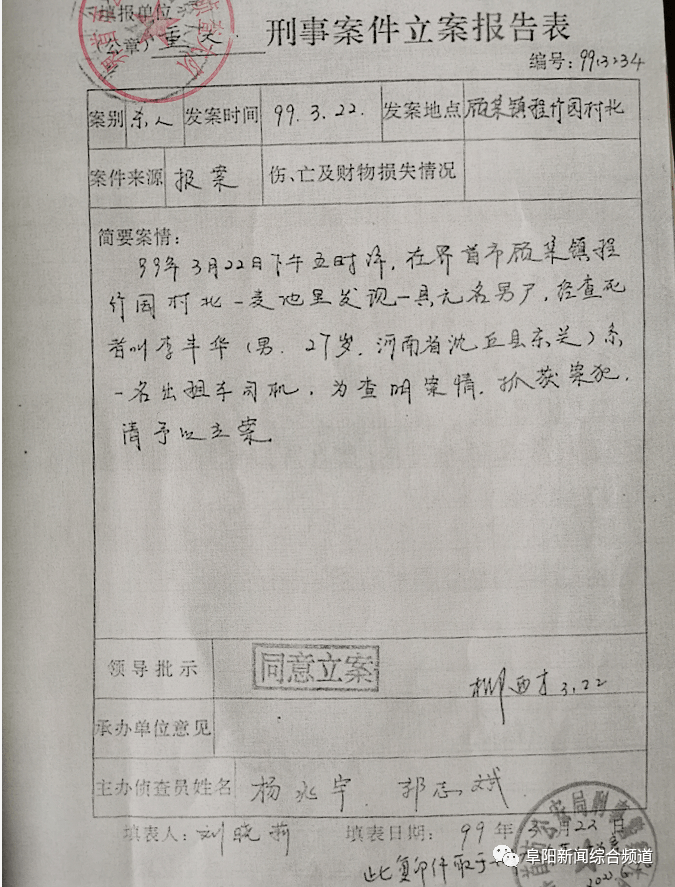 填报单位
(公章) 重大 刑事案件立案报告表
编号: 9903234
案别 杀人 发案时间 99.3.22. 发案地点 顾集镇程竹园村北
案件来源 报案 伤、亡及财物损失情况
简要案情:
99年3月22日下午五时许,在界首市顾集镇程
竹园村北一麦地里发现一具无名男尸,经查死
者叫李丰华(男.27岁.河南省沈丘县东芝)系
一名出租车司机,为查明案情.抓获案犯,
请予以立案
领导批示 同意立案 3.22
承办单位意见
主办侦查员姓名 杨兆宇 郭志斌
填表人: 刘晓莉 填表日期: 99年3月22日
此复印件取于
阜阳新闻综合频道